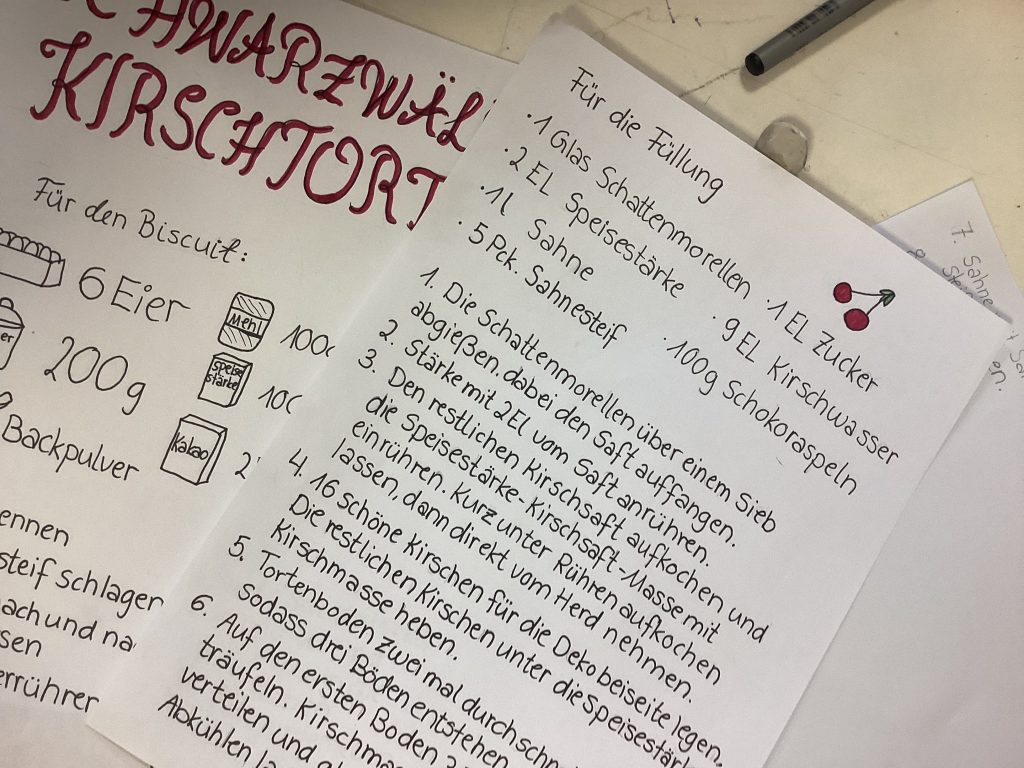 SCHWARZWÄL
KIRSCHTORT
Für den Biscuit:
6 Eier
Mehl
100
200g
Speise
stärke
Backpulver
Kakao
ennen
steif schlagen
nach und na
errührer
Für die Füllung
· 1 Glas Schattenmorellen · 1 EL Zucker
· 2 EL Speisestärke · 9 EL Kirschwasser
· 1l Sahne · 100g Schokoraspeln
· 5 Pck. Sahnesteif
1. Die Schattenmorellen über einem Sieb
abgießen, dabei den Saft auffangen.
2. Stärke mit 2EL vom Saft anrühren.
3. Den restlichen Kirschsaft aufkochen und
die Speisestärke-Kirschsaft-Masse mit
einrühren. Kurz unter Rühren aufkochen
lassen, dann direkt vom Herd nehmen.
4. 16 schöne Kirschen für die Deko beiseite legen.
Die restlichen Kirschen unter die Speisestärk
Kirschmasse heben.
5. Tortenboden zwei mal durchschn
sodass drei Böden entstehen
6. Auf den ersten Boden 3
träufeln. Kirschma
verteilen und
Abkühlen la
7. Sahne